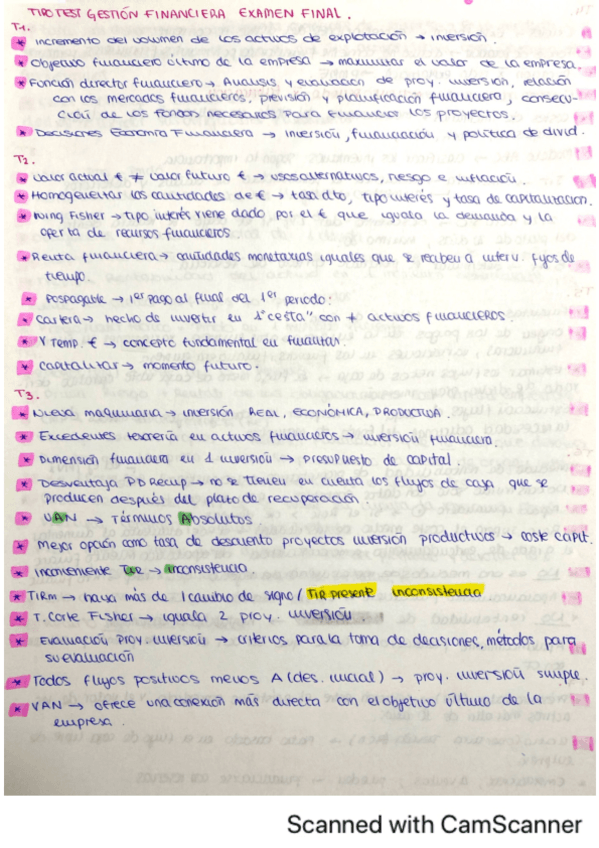 TIPO TEST GESTIÓN FINANCIERA EXAMEN FINAL.
T1.
* Incremento del volumen de los activos de explotación → inversión.
* Objetivo financiero último de la empresa → maximizar el valor de la empresa.
* Función director financiero → Análisis y evaluación de proy. inversión, relación
con los mercados financieros, previsión y planificación financiera, consecu-
ción de los fondos necesarios para financiar los proyectos.
* Decisiones Economía Financiera → inversión, financiación y política de divid.
T2.
* Valor actual € ≠ valor futuro € → usos alternativos, riesgo e inflación.
* Homogeneizar las cantidades de € → tasa dto, tipo interés y tasa de capitalización.
* Irving Fisher → tipo interés viene dado por el € que iguala la demanda y la
oferta de recursos financieros
* Renta financiera → cantidades monetarias iguales que se reciben a interv. fijos de
tiempo.
* Pospagable → 1er Pago al final del 1er periodo.
* Cartera → hecho de invertir en 1 "cesta" con ≠ activos financieros.
* V Temp. € → concepto fundamental en finanzas.
* Capitalizar → momento futuro.
T3.
* Nueva maquinaria → inversión REAL, ECONÓMICA, PRODUCTIVA.
* Excedentes tesorería en activos financieros → inversión financiera.
* Dimensión financiera en 1 inversión → presupuesto de capital.
* Desventaja PD Recup → no se tienen en cuenta los flujos de caja que se
producen después del plazo de recuperación.
* VAN → Términos Absolutos
* Mejor opción como tasa de descuento proyectos inversión productivos → coste capit.
* Inconveniente TIR → inconsistencia.
* TIRM → haya más de 1 cambio de signo / TIR presente inconsistencia
* T. Corte Fisher → iguala 2 proy. inversión.
* Evaluación Proy. inversión → criterios para la toma de decisiones, métodos para
su evaluación
* Todos flujos positivos menos A (des. inicial) → proy. inversión simple.
* VAN → ofrece una conexión más directa con el objetivo último de la
empresa.
Scanned with CamScanner